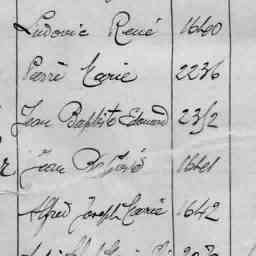 Ludovic René 1640
Pierre Marie 2236
Jean Baptiste Edouard 2352
Jean Bte José 1641
Alfred Joseph Marie 1642